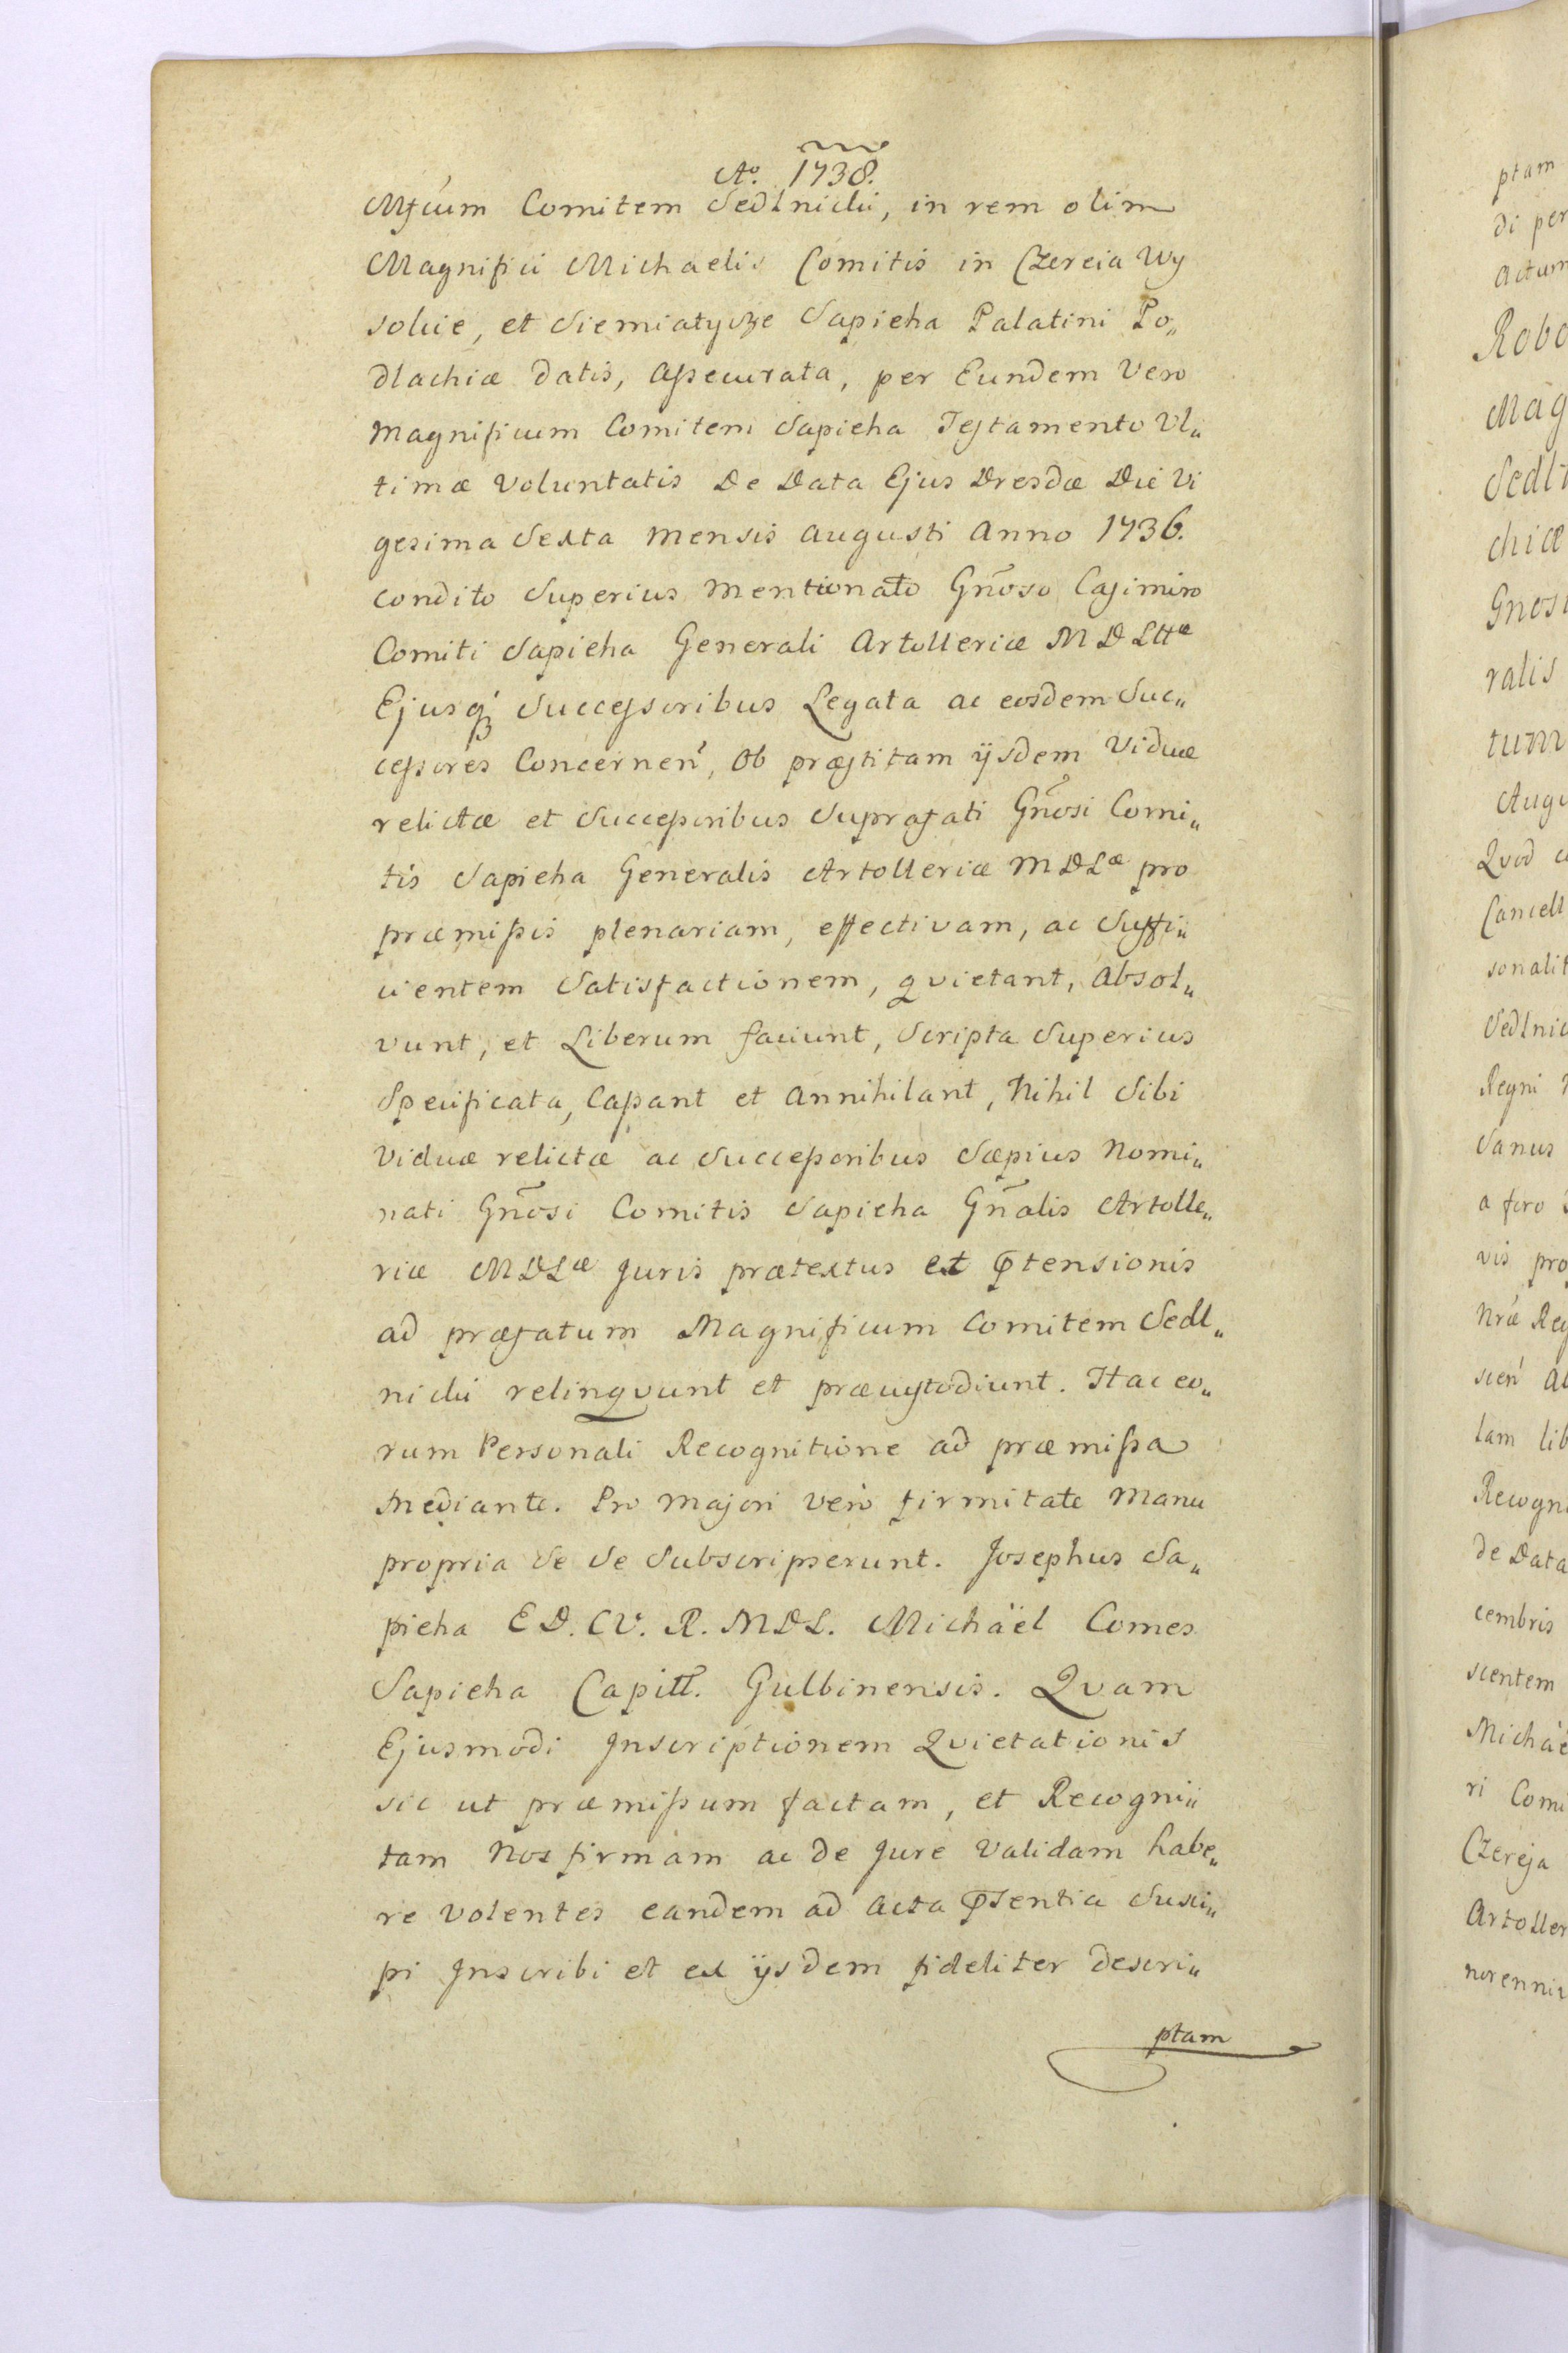 Ao. 1738.
Mfcum Comitem Sedlnicki, in rem olim
Magnifici Michaelis Comitis in Czereia Wy
sokie, et Siemiatycze Sapieha Palatini Po„
dlachiæ datis, assecurata, per Eundem Vero
Magnificum Comitem Sapieha Testamento Ul„
timæ Voluntatis De Data Ejus Dresdæ Die Vi
gesima Sexta Mensis Augusti Anno 1736.
condito Superius Mentionato Gn̄oso Casimiro
Comiti Sapieha Generali Artolleriæ M D Lttæ
Ejusq; Successoribus Legata ac eosdem Suc„
cessores Concernen', Ob præstitam ijsdem Viduæ
relictæ et Successoribus Suprafati Gn̄osi Comi„
tis Sapieha Generalis Artolleriæ M D Læ pro
præmissis plenariam, effectivam, ac Suffi„
cientem Satisfactionem, qvietant, Absol„
vunt, et Liberum faciunt, Scripta Superius
Specificata, Cassant et Annihilant, Nihil Sibi
Viduæ relictæ ac Successoribus Sæpius Nomi„
nati Gn̄osi Comitis Sapieha Gn̄alis Artolle„
riæ M D Læ Juris prætextus et p̄tensionis
ad præfatum Magnificum Comitem Sedl„
nicki relinqvunt et præcustodiunt. Itac eo„
rum Personali Recognitione ad præmissa
Mediante. Pro Majori verò firmitate Manu
propria Se Se Subscripserunt. Josephus Sa„
pieha E D. C V. R. M D L. Michaël Comes
Sapieha Capitt. Gulbinensis. Qvam
Ejusmodi Inscriptionem Qvietationis
sic ut præmissum factam, et Recogni„
tam Nos firmam ac de Jure Validam habe„
re volentes eandem ad Acta p̄sentia Susci„
pi Inscribi et ex ijsdem fideliter descri„
ptam
ptam
di per
Actum
Robo
Mag
Sedl
chiæ
Gnosi
ralis
tum
Augu
Qvod
Cancell
sonalit
Sedlnic
Regni
Sanus
a foro
vis pro
Nræ Reg
scen'
tam lib
Recogni
de Data
cembris
scentem
Michaë
ri Comi
Czereja
Artoller
norenni